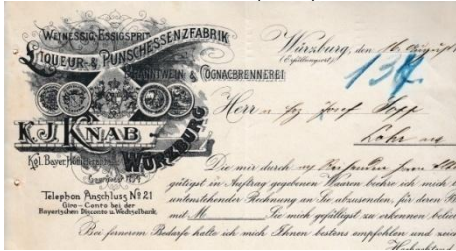 WEINESSIG, ESSIGSPRIT
LIQUEUR- & PUNSCHESSENZFABRIK
BRANNTWEIN & COGNACBRENNEREI
K.J. KNAB
WÜRZBURG
Kgl. Bayer. Hof
Telephon Anschluss № 21
Giro-Conto bei der
Bayerischen Disconto u. Wechselbank.
Würzburg, den 16. August
(Erfüllungsort)
137.
Herrn Josef
Lohr
Die mir durch
gütigst in Auftrag gegebenen Waaren beehre ich mich
untenstehender Rechnung an Sie abzusenden, für deren
mit M Sie mich gefälligst zu erkennen
Bei fernerem Bedarfe halte ich mich Ihnen bestens empfohlen und